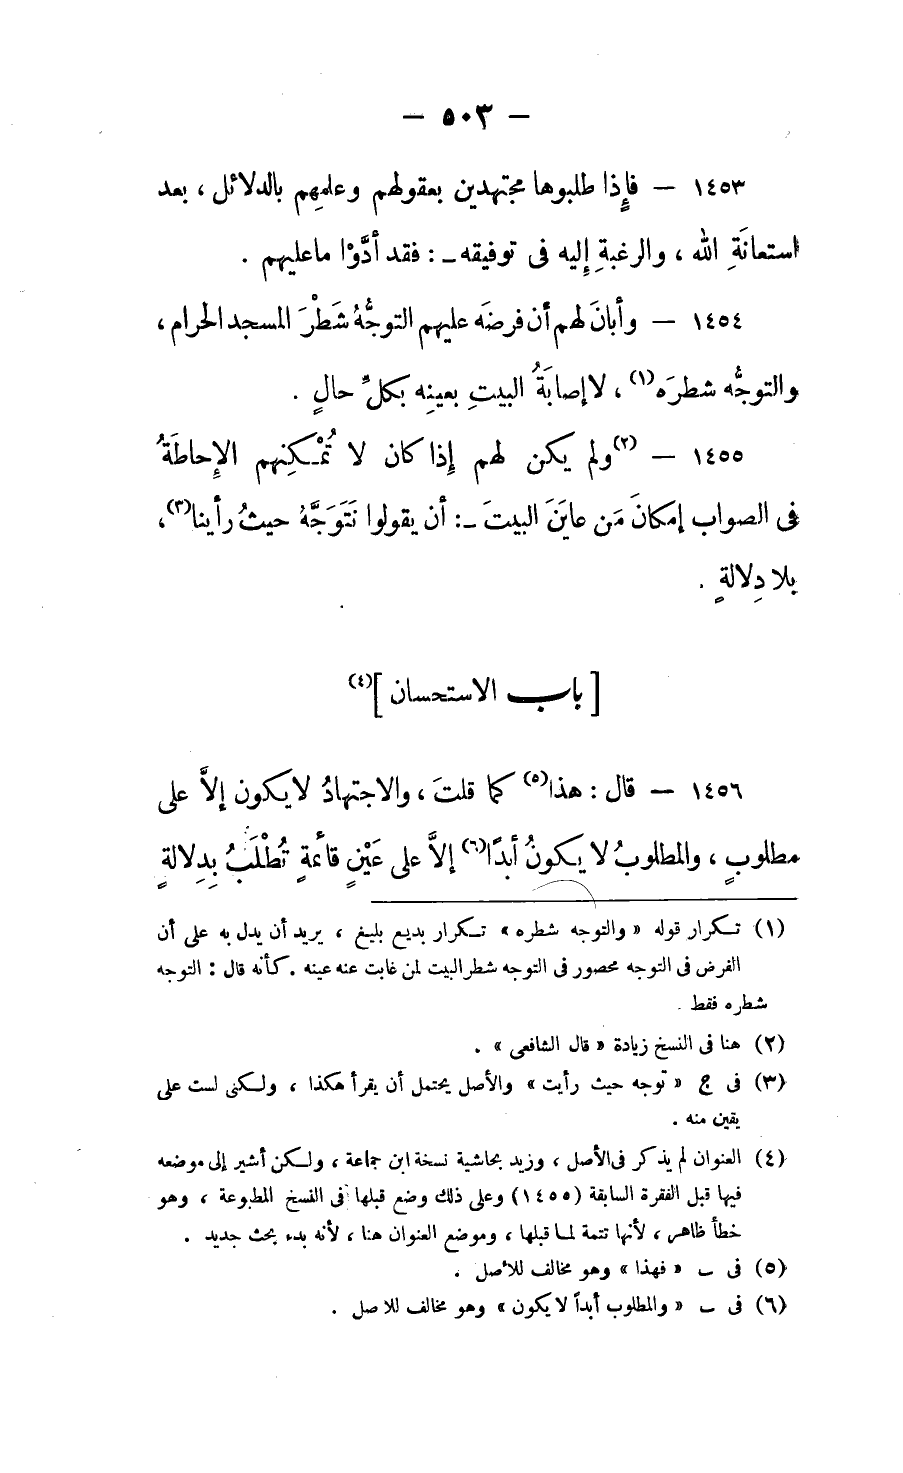 — ٥٠٣ —
١٤٥٣ — فإِذا طلبوها مجتهدين بعقولهم وعلمِهم بالدلائل ، بعد
استعانَةِ الله ، والرغبةِ إليه فى توفيقه ــ : فقد أدَّوْا ما عليهم .
١٤٥٤ — وأبانَ لهم أن فرضَه عليهم التوجُّهُ شَطْرَ المسجد الحرام ،
والتوجُّه شطرَه(١) ، لا إصابَةُ البيتِ بعينِه بكلِّ حالٍ .
١٤٥٥ — (٢)ولم يكن لهم إذا كان لا تُمْكِنهم الإحاطَةُ
فى الصواب إمكانَ مَن عايَنَ البيتَ ــ : أن يقولوا نَتَوَجَّهُ حيثُ رأينا(٣) ،
بلا دِلالةٍ .
[ باب الاستحسان ](٤)
١٤٥٦ — قال : هذا(٥) كما قلتَ ، والاجتهادُ لا يكون إلاَّ على
مطلوبٍ ، والمطلوبُ لا يكونُ أبدًا(٦) إلاَّ على عَيْنٍ قائمةٍ تُطْلَبُ بِدِلالةٍ
(١) تكرار قوله « والتوجه شطره » تكرار بديع بليغ ، يريد أن يدل به على أن
الفرض فى التوجه محصور فى التوجه شطر البيت لمن غابت عنه عينه . كأنه قال : التوجه
شطره فقط .
(٢) هنا فى النسخ زيادة « قال الشافعى » .
(٣) فى ج « توجه حيث رأيت » والأصل يحتمل أن يقرأ هكذا ، ولكنى لست على
يقين منه .
(٤) العنوان لم يذكر فى الأصل ، وزيد بحاشية نسخة ابن جماعة ، ولكن أشير إلى موضعه
فيها قبل الفقرة السابقة (١٤٥٥) وعلى ذلك وضع قبلها فى النسخ المطبوعة ، وهو
خطأ ظاهر ، لأنها تتمة لما قبلها ، وموضع العنوان هنا ، لأنه بدء بحث جديد .
(٥) فى ب « فهذا » وهو مخالف للأصل .
(٦) فى ب « والمطلوب أبداً لا يكون » وهو مخالف للاصل .